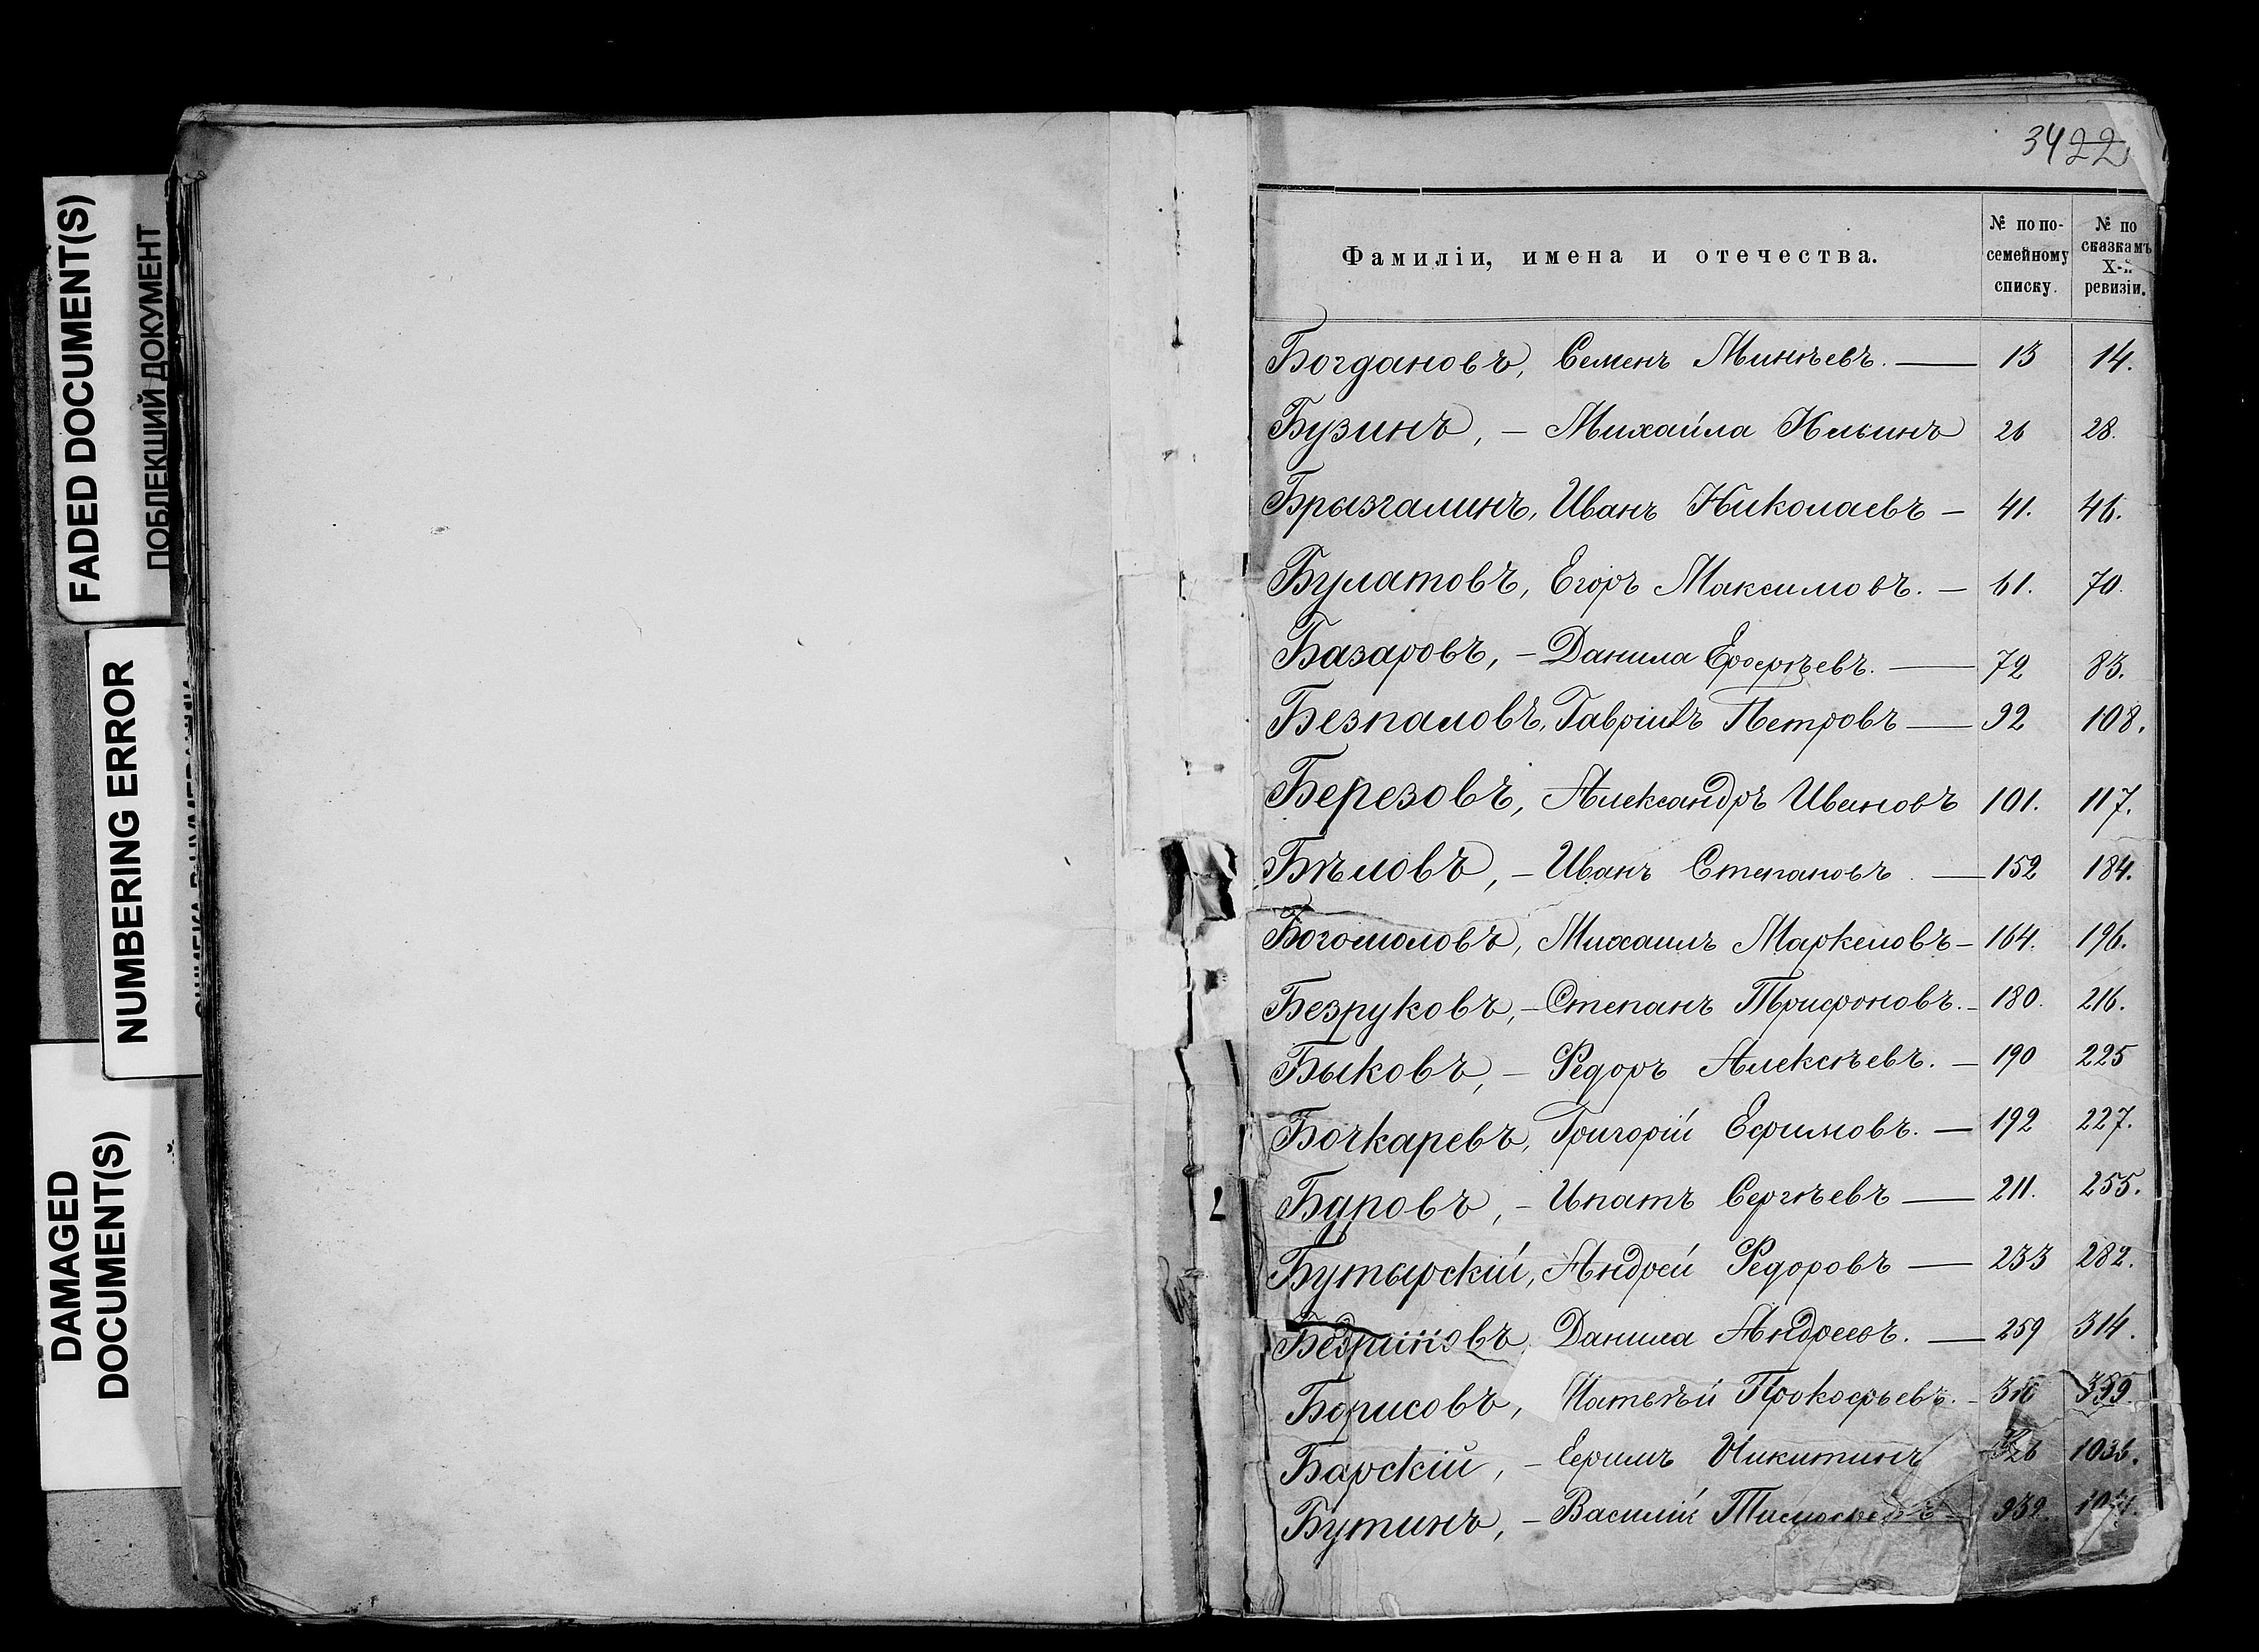 FADED DOCUMENT(S)
ПОБЛЕКШИЙ ДОКУМЕНТ
NUMBERING ERROR
DAMAGED
DOCUMENT(S)
34 22
Фамиліи, имена и отечества.
№ по по-
семейному
списку.
№ по
сказкамъ
X-й
ревизіи.
Богдановъ, Семенъ Минѣевъ. — 13 14.
Бузинъ, — Михайла Ильинъ 26 28.
Брызгалинъ, Иванъ Николаевъ — 41. 46.
Булатовъ, Егоръ Максимовъ. — 61. 70.
Базаровъ, — Данила Ерофѣевъ. — 72 83.
Безпаловъ, Гавріилъ Петровъ — 92 108.
Березовъ, Александръ Ивановъ 101. 117.
Бѣловъ, — Иванъ Степановъ. — 152 184.
Богомоловъ, Михаилъ Маркеловъ — 164. 196.
Безруковъ, — Степанъ Трифоновъ. — 180. 216.
Быковъ, — Федоръ Алексѣевъ. — 190 225
Бочкаревъ, Григорій Ефимовъ. — 192 227.
Буровъ, — Ипатъ Сергѣевъ — 211. 255.
Бутырскій, Андрей Федоровъ — 233 282.
Бедриновъ, Данила Андреевъ. — 259 314.
Борисовъ, Матвѣй Прокофьевъ. —
Барскій, — Ефимъ Никитинъ 1036.
Бутинъ, — Василій 932.